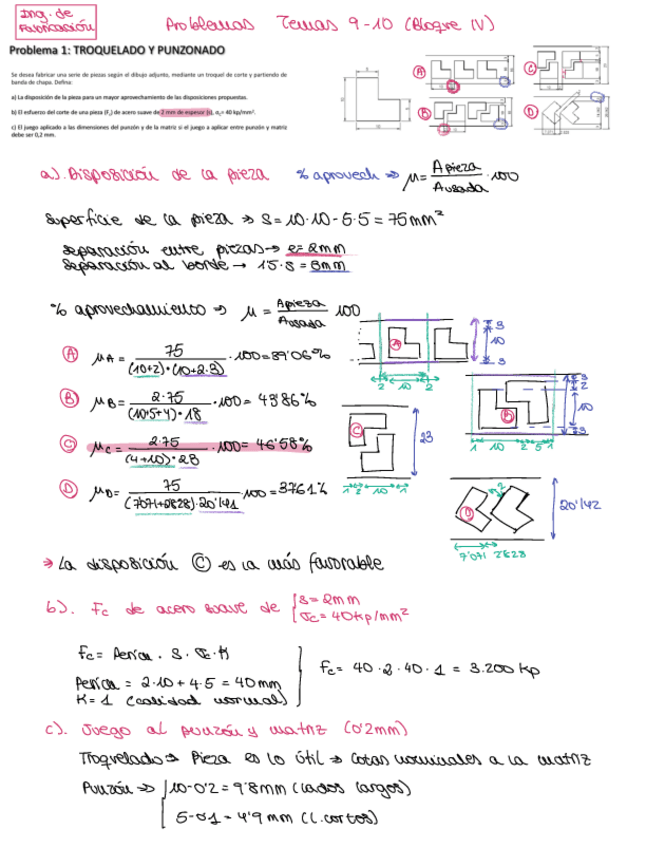 Ing. de
Fabricación
Problemas Temas 9-10 (Bloque IV)
Problema 1: TROQUELADO Y PUNZONADO
Se desea fabricar una serie de piezas según el dibujo adjunto, mediante un troquel de corte y partiendo de
banda de chapa. Defina:
a) La disposición de la pieza para un mayor aprovechamiento de las disposiciones propuestas.
b) El esfuerzo del corte de una pieza (Fc) de acero suave de 2 mm de espesor (s), σc= 40 kp/mm².
c) El juego aplicado a las dimensiones del punzón y de la matriz si el juego a aplicar entre punzón y matriz
debe ser 0,2 mm.
A
B
C
D
a). Disposición de la pieza % aprovech ⇒ μ = Apieza / Ausada · 100
Superficie de la pieza ⇒ S = 10·10 - 5·5 = 75 mm²
Separación entre piezas → e = 2mm
Separación al borde → 1'5·s = 3mm
% aprovechamiento ⇒ μ = Apieza / Ausada 100
A μA = 75 / (10+2)·(10+2·3) · 100 = 39'06%
B μB = 2·75 / (10+5+4)·18 · 100 = 43'86%
C μC = 2·75 / (4+10)·23 · 100 = 46'58%
D μD = 75 / (7'071+2'828)·20'141 100 = 37'61%
A
3
10
3
2 10 2
B
3
2
10
3
1 10 2 5 1
C
23
1 2 10 1
D
2
20'142
7'071 2'828
⇒ La disposición C es la más favorable
b). Fc de acero suave de { s = 2mm
σc = 40 kp/mm²
Fc = Perím · S · σc · K
Perím = 2·10 + 4·5 = 40 mm
K = 1 (calidad normal)
Fc = 40 · 2 · 40 · 1 = 3.200 kp
c). Juego al punzón y matriz (0'2mm)
Troquelado → Pieza es lo útil → Cotas nominales a la matriz
Punzón ⇒ 10-0'2 = 9'8 mm (lados largos)
5-0'1 = 4'9 mm (l. cortos)